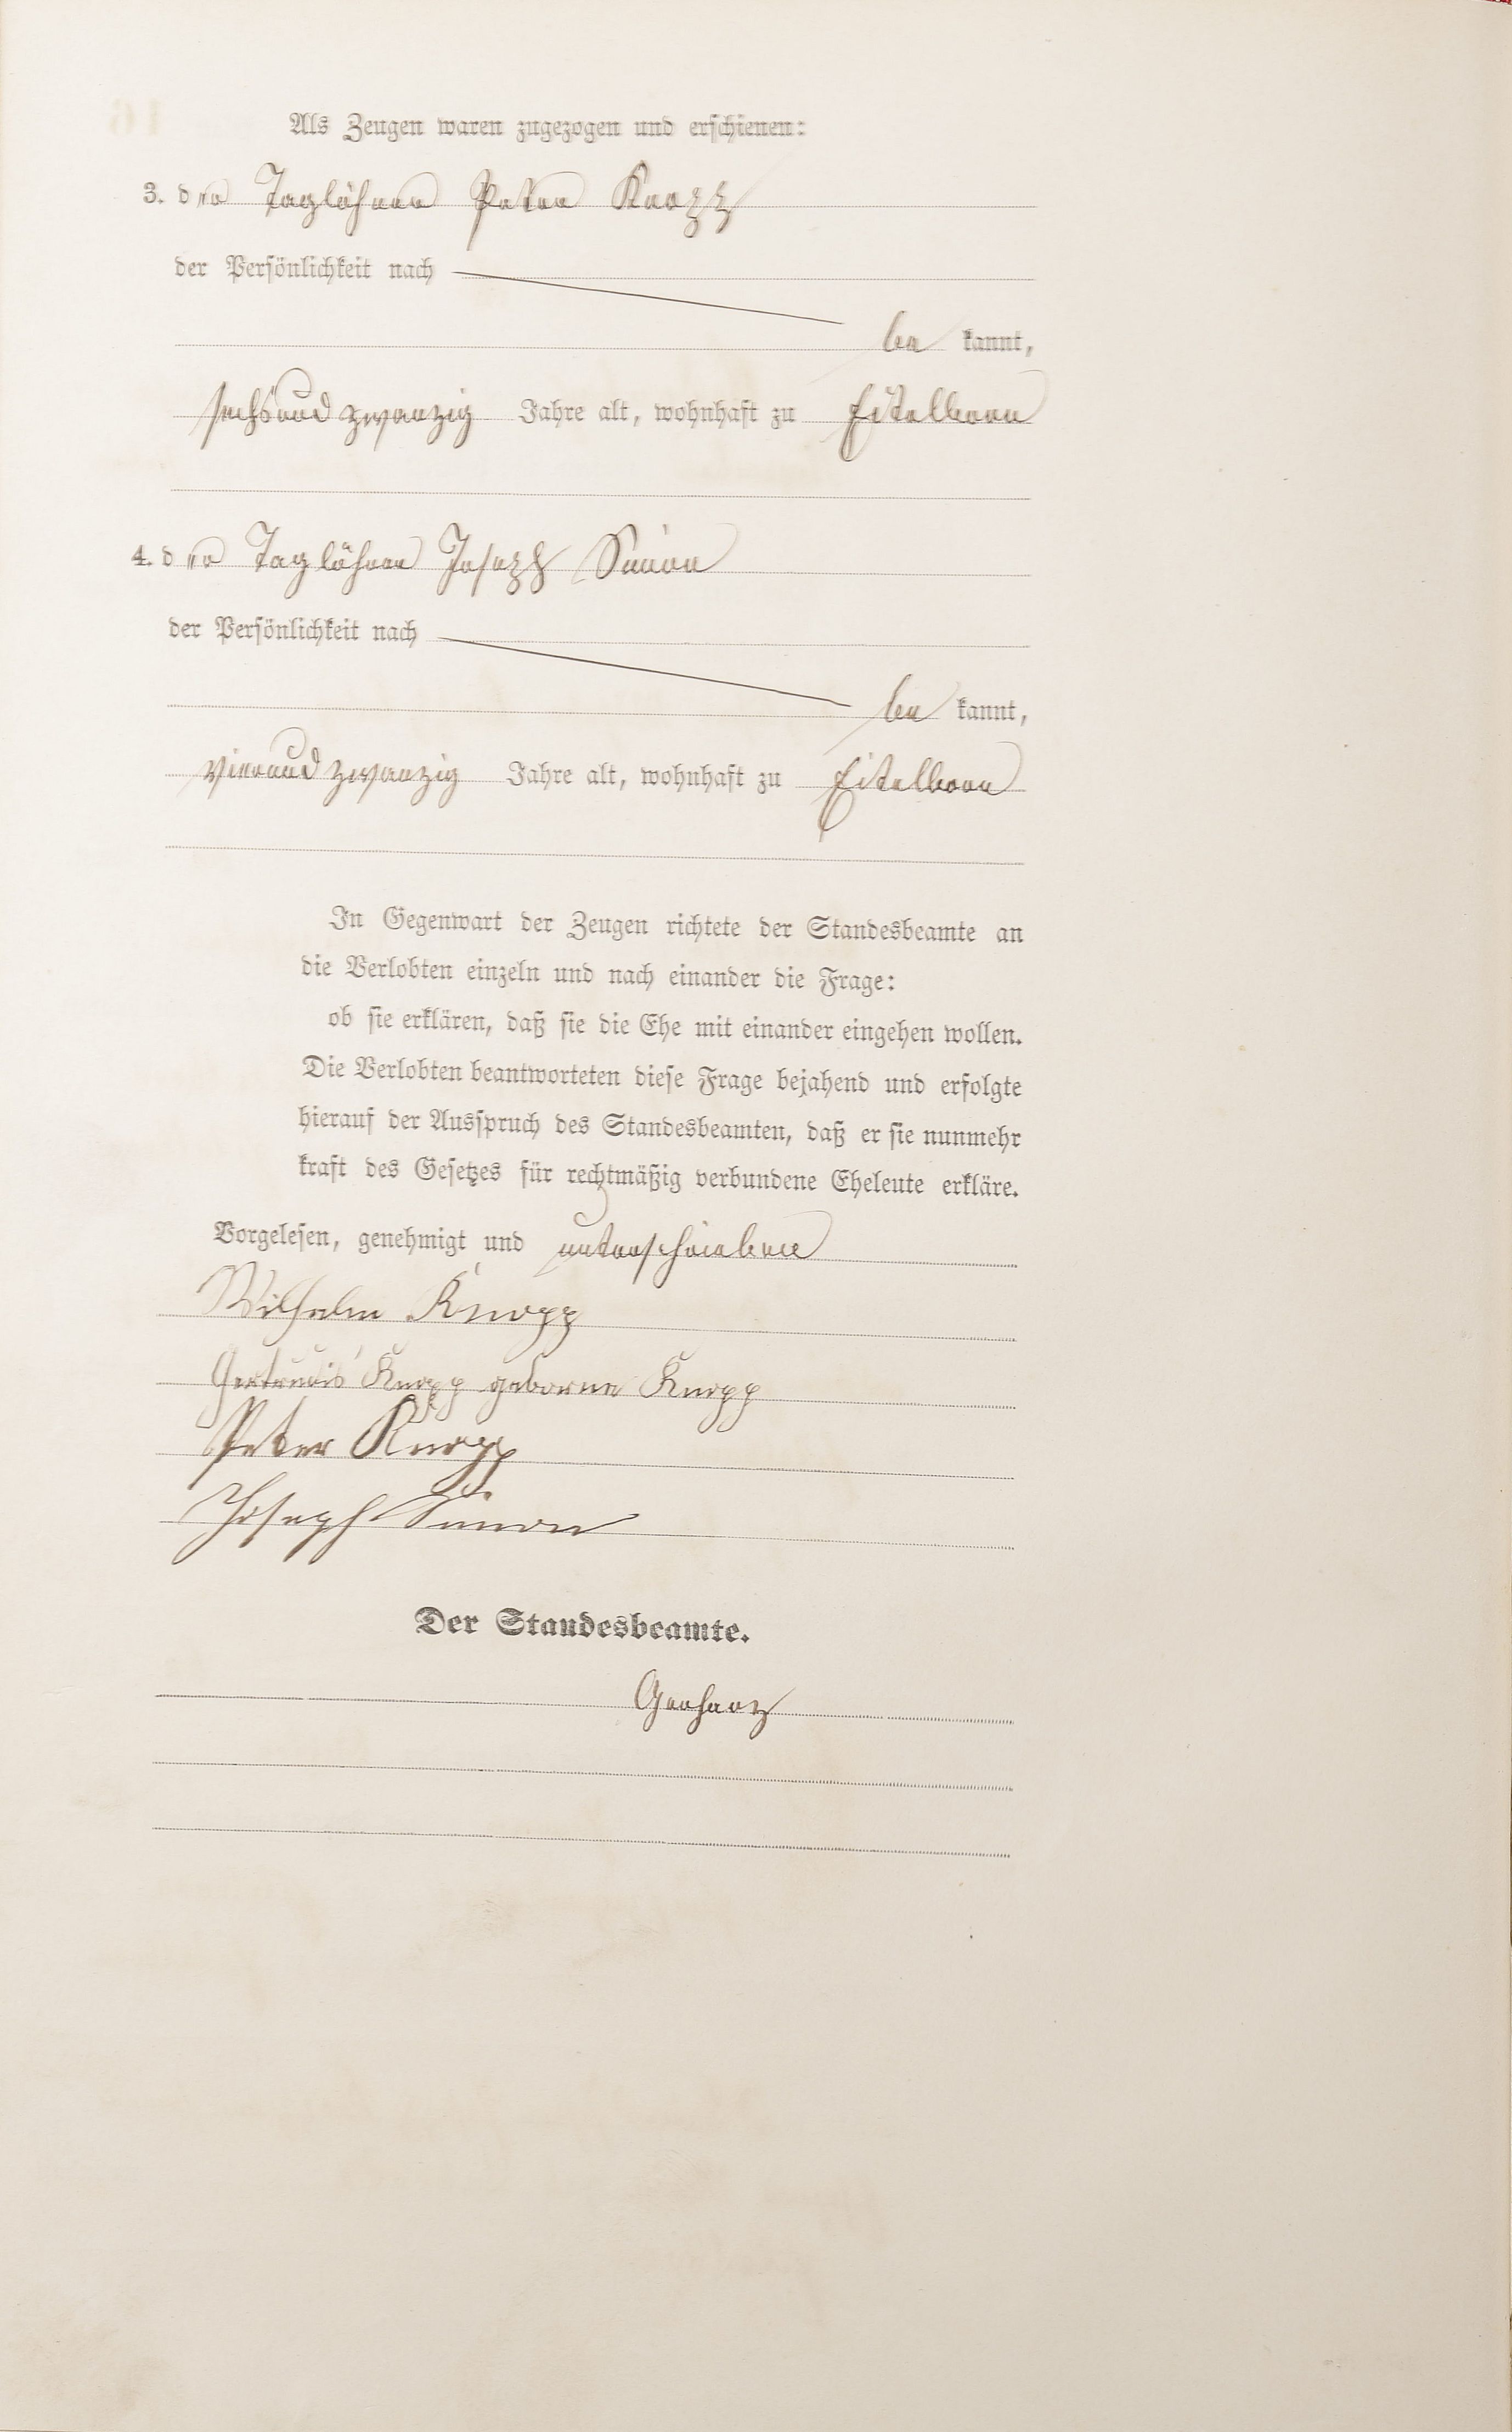 Als Zeugen waren zugezogen und erschienen:
3. der Taglöhner Peter Knopp
der Persönlichkeit nach
be kannt,
sechsundzwanzig Jahre alt, wohnhaft zu Eitelborn
4. der Taglöhner Joseph Simon
der Persönlichkeit nach
be kannt,
vierundzwanzig Jahre alt, wohnhaft zu Eitelborn
In Gegenwart der Zeugen richtete der Standesbeamte an
die Verlobten einzeln und nach einander die Frage:
ob sie erklären, daß sie die Ehe mit einander eingehen wollen.
Die Verlobten beantworteten diese Frage bejahend und erfolgte
hierauf der Ausspruch des Standesbeamten, daß er sie nunmehr
kraft des Gesetzes für rechtmäßig verbundene Eheleute erkläre.
Vorgelesen, genehmigt und unterschrieben
Wilhelm Knopp
Gertrudis Knopp geborne Knopp
Peter Knopp
Joseph Simon
Der Standesbeamte.
Gerharz